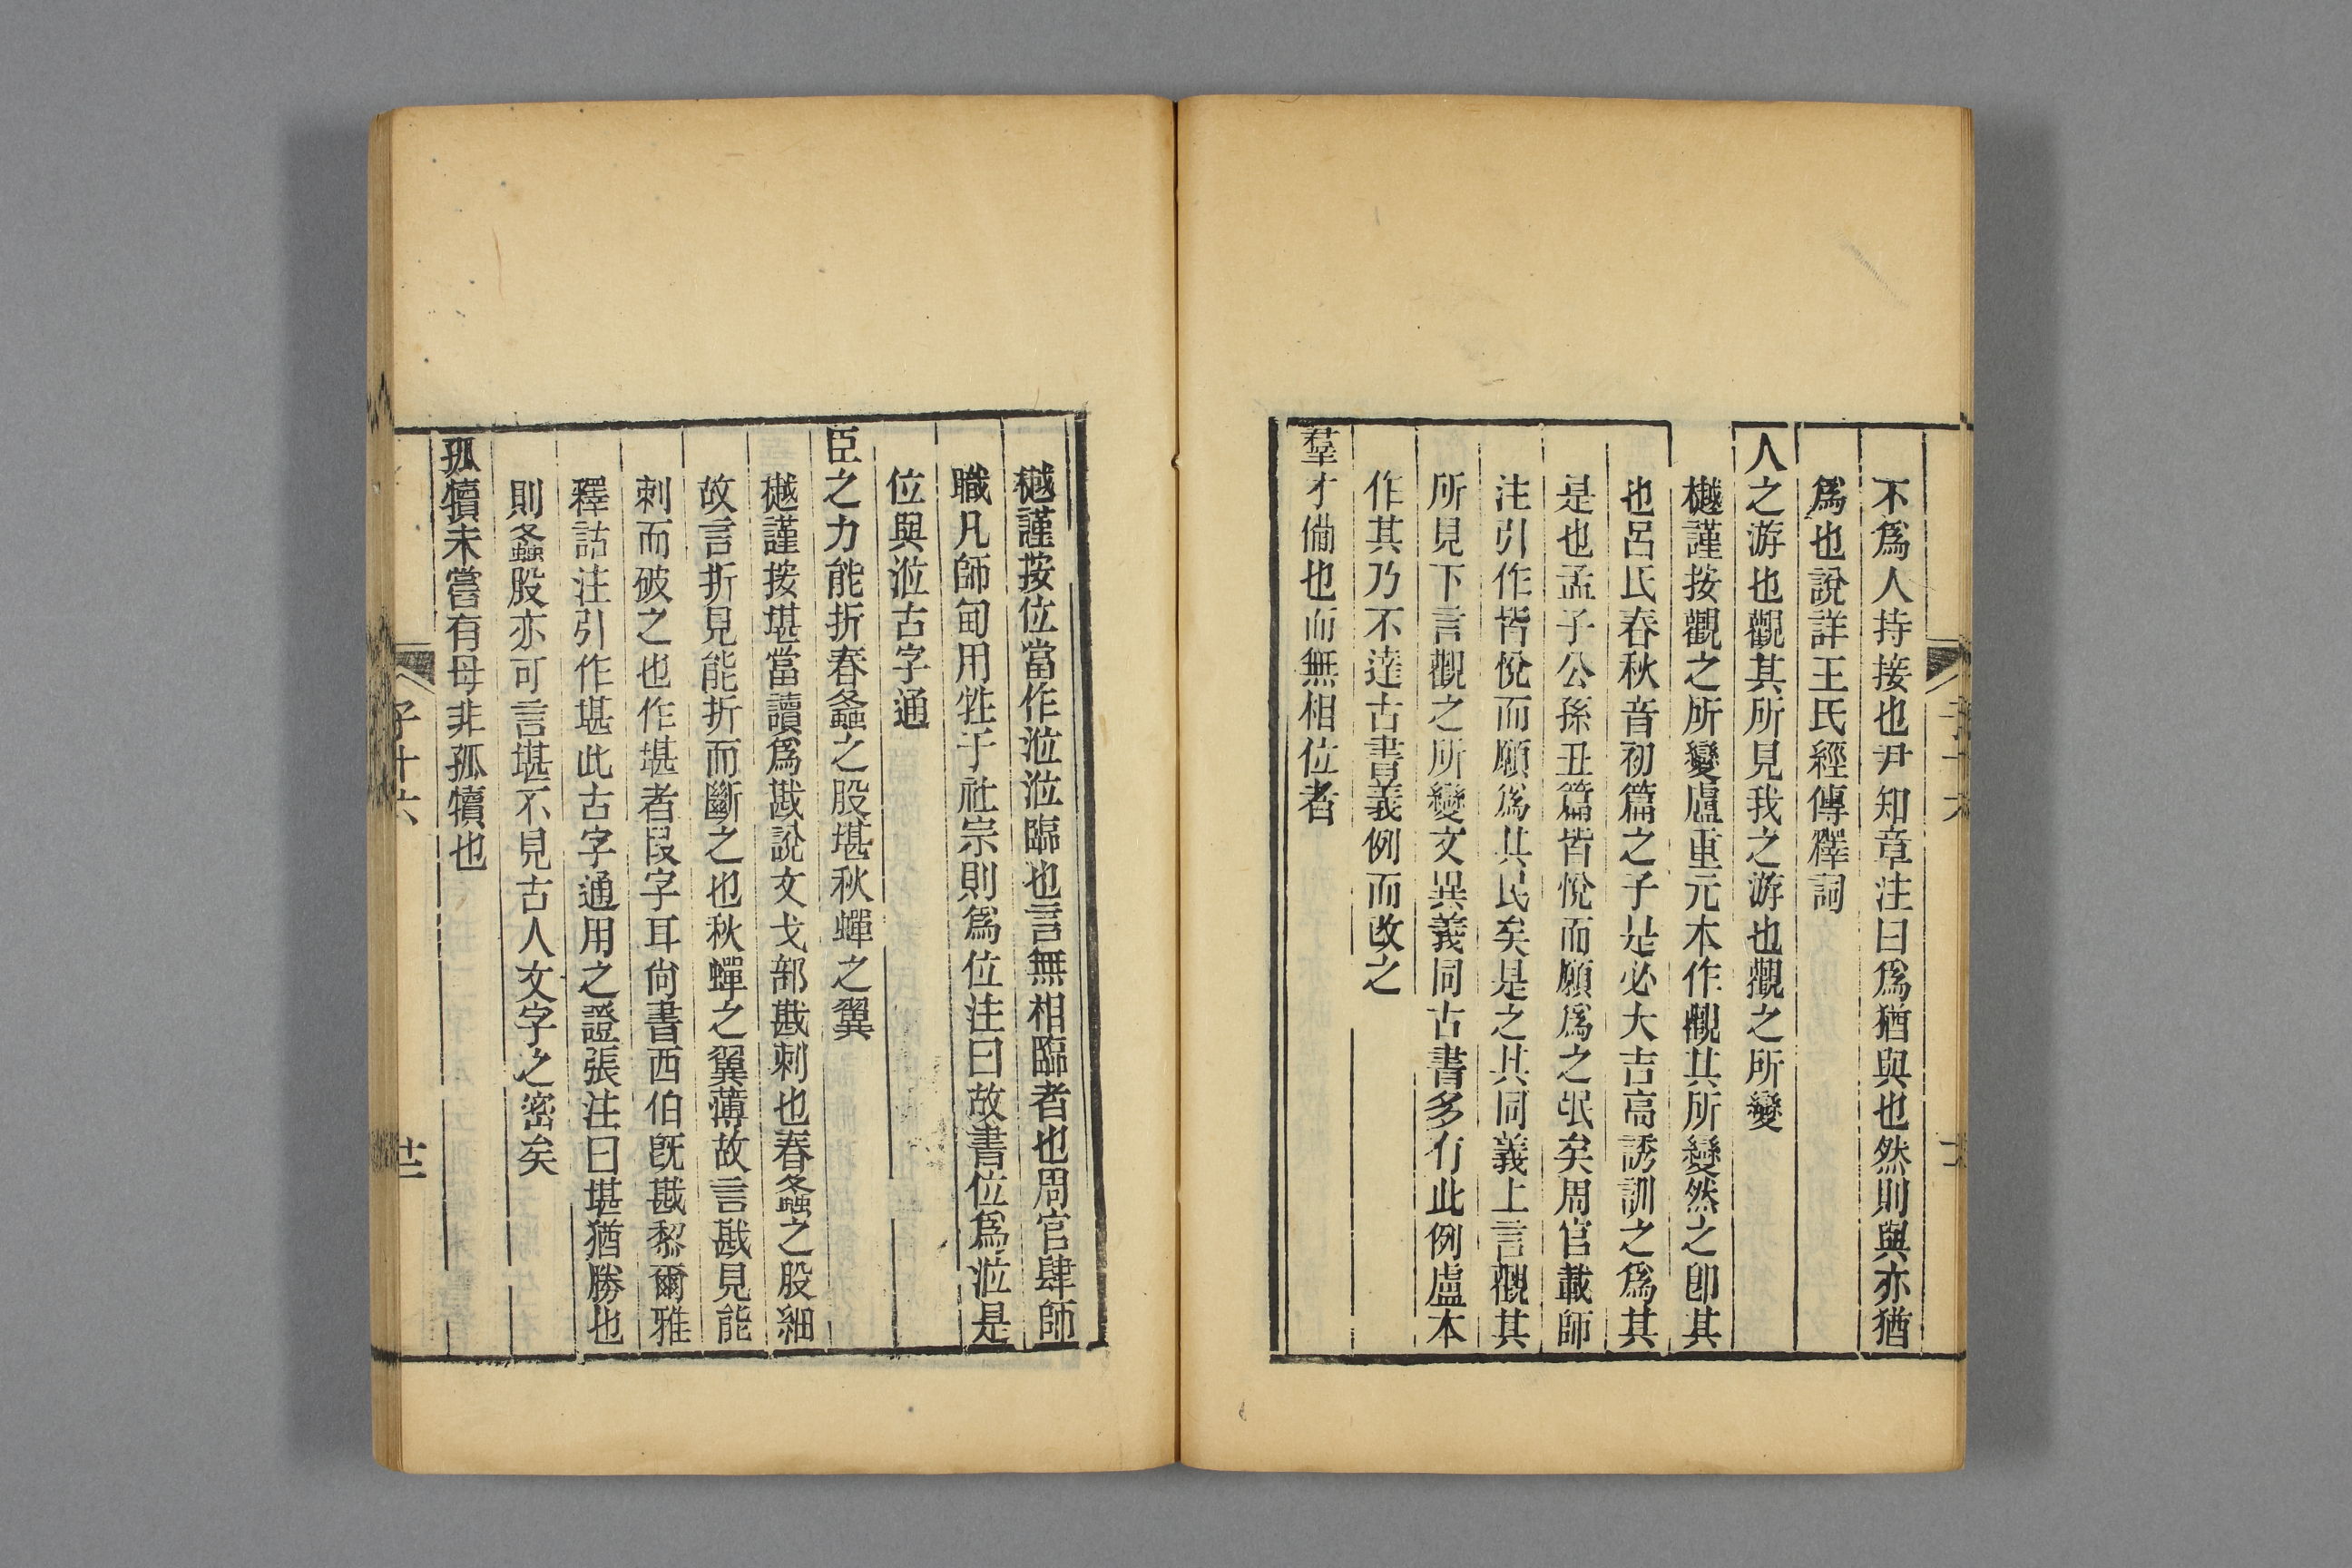 不爲人持接也尹知章注曰爲猶與也然則與亦猶
爲也說詳王氏經傳釋詞
人之游也觀其所見我之游也觀之所變
樾謹按觀之所變盧重元本作觀其所變然之卽其
也呂氏春秋音初篇之子是必大吉高誘訓之爲其
是也孟子公孫丑篇皆悅而願爲之氓矣周官載師
注引作皆悅而願爲其民矣是之其同義上言觀其
所見下言觀之所變文異義同古書多有此例盧本
作其乃不達古書義例而改之
羣才備也而無相位者
樾謹按位當作涖涖臨也言無相臨者也周官肆師
職凡師甸用牲于社宗則爲位注曰故書位爲涖是
位與涖古字通
臣之力能折春螽之股堪秋蟬之翼
樾謹按堪當讀爲戡說文戈部戡刺也春螽之股細
故言折見能折而斷之也秋蟬之翼薄故言戡見能
刺而破之也作堪者叚字耳尙書西伯旣戡黎爾雅
釋詁注引作堪此古字通用之證張注曰堪猶勝也
則螽股亦可言堪不見古人文字之密矣
孤犢未嘗有母非孤犢也
子十六